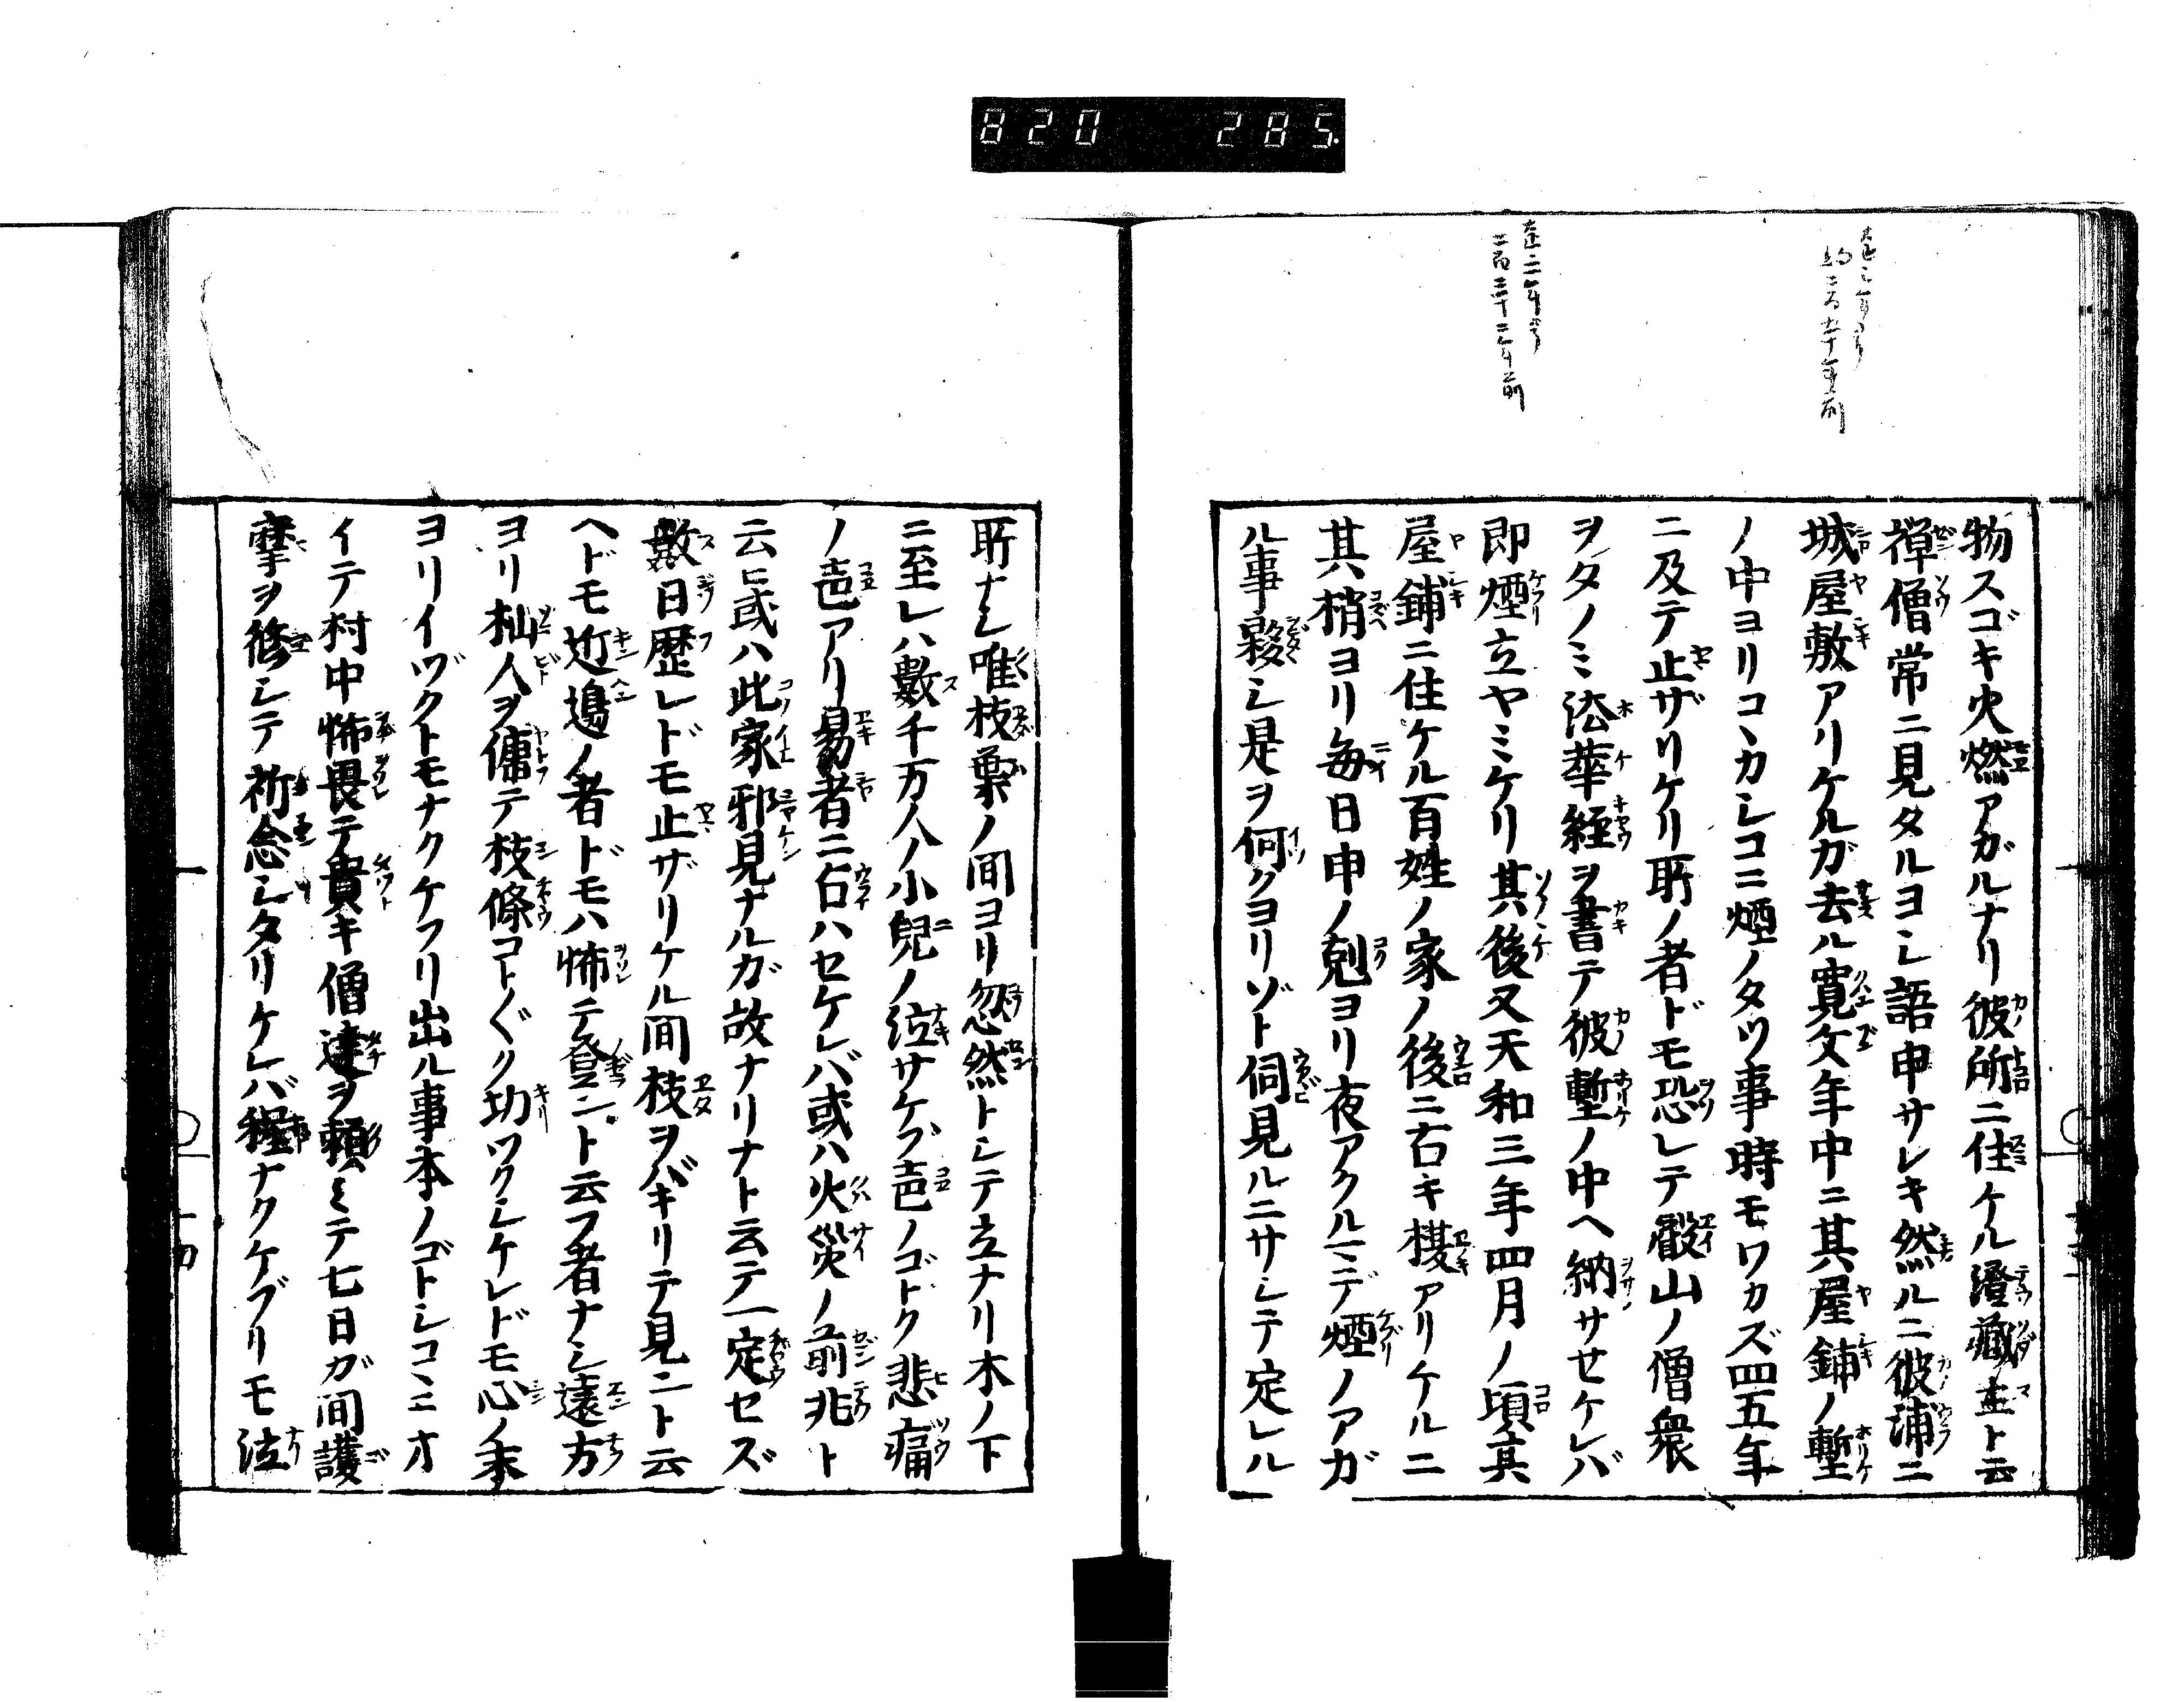 820 285
物スゴキ火燃アガルナリ彼所ニ住ケル澄藏主ト云
禅僧常ニ見タルヨシ語申サレキ然ルニ彼浦ニ
城屋敷アリケルガ去ル寛文年中ニ其屋鋪ノ塹
ノ中ヨリコヽカシコニ煙ノタツ事時モワカズ四五年
ニ及テ止ザリケリ所ノ者ドモ恐レテ叡山ノ僧衆
ヲタノミ法華経ヲ書テ彼塹ノ中ヘ納サセケレバ
即煙立ヤミケリ其後又天和三年四月ノ頃其
屋鋪ニ住ケル百姓ノ家ノ後ニ古キ榎アリケルニ
其梢ヨリ毎日申ノ剋ヨリ夜アクルミデ煙ノアガ
ル事夥シ是ヲ何クヨリゾト伺見ルニサシテ定レル
所ナシ唯枝葉ノ間ヨリ忽然トシテ立ナリ木ノ下
ニ至レハ數千万人ノ小兒ノ泣サケブ声ノゴトク悲痛
ノ声アリ易者ニ占ハセケレバ或ハ火災ノ前兆ト
云ヒ或ハ此家邪見ナルガ故ナリナト云テ一定セズ
數日歴レドモ止ザリケル間枝ヲバキリテ見ントムム
ヘドモ近邊ノ者ドモハ怖テ登ント云フ者ナシ遠方
ヨリ杣人ヲ傭テ枝條コト〲ク切ツクシケレドモ心ノ末
ヨリイヅクトモナクケフリ出ル事本ノゴトシコヽニオ
イテ村中怖畏テ貴キ僧達ヲ頼ミテ七日ガ間護
摩ヲ修シテ祈念シタリケレバ程ナクケブリモ泣